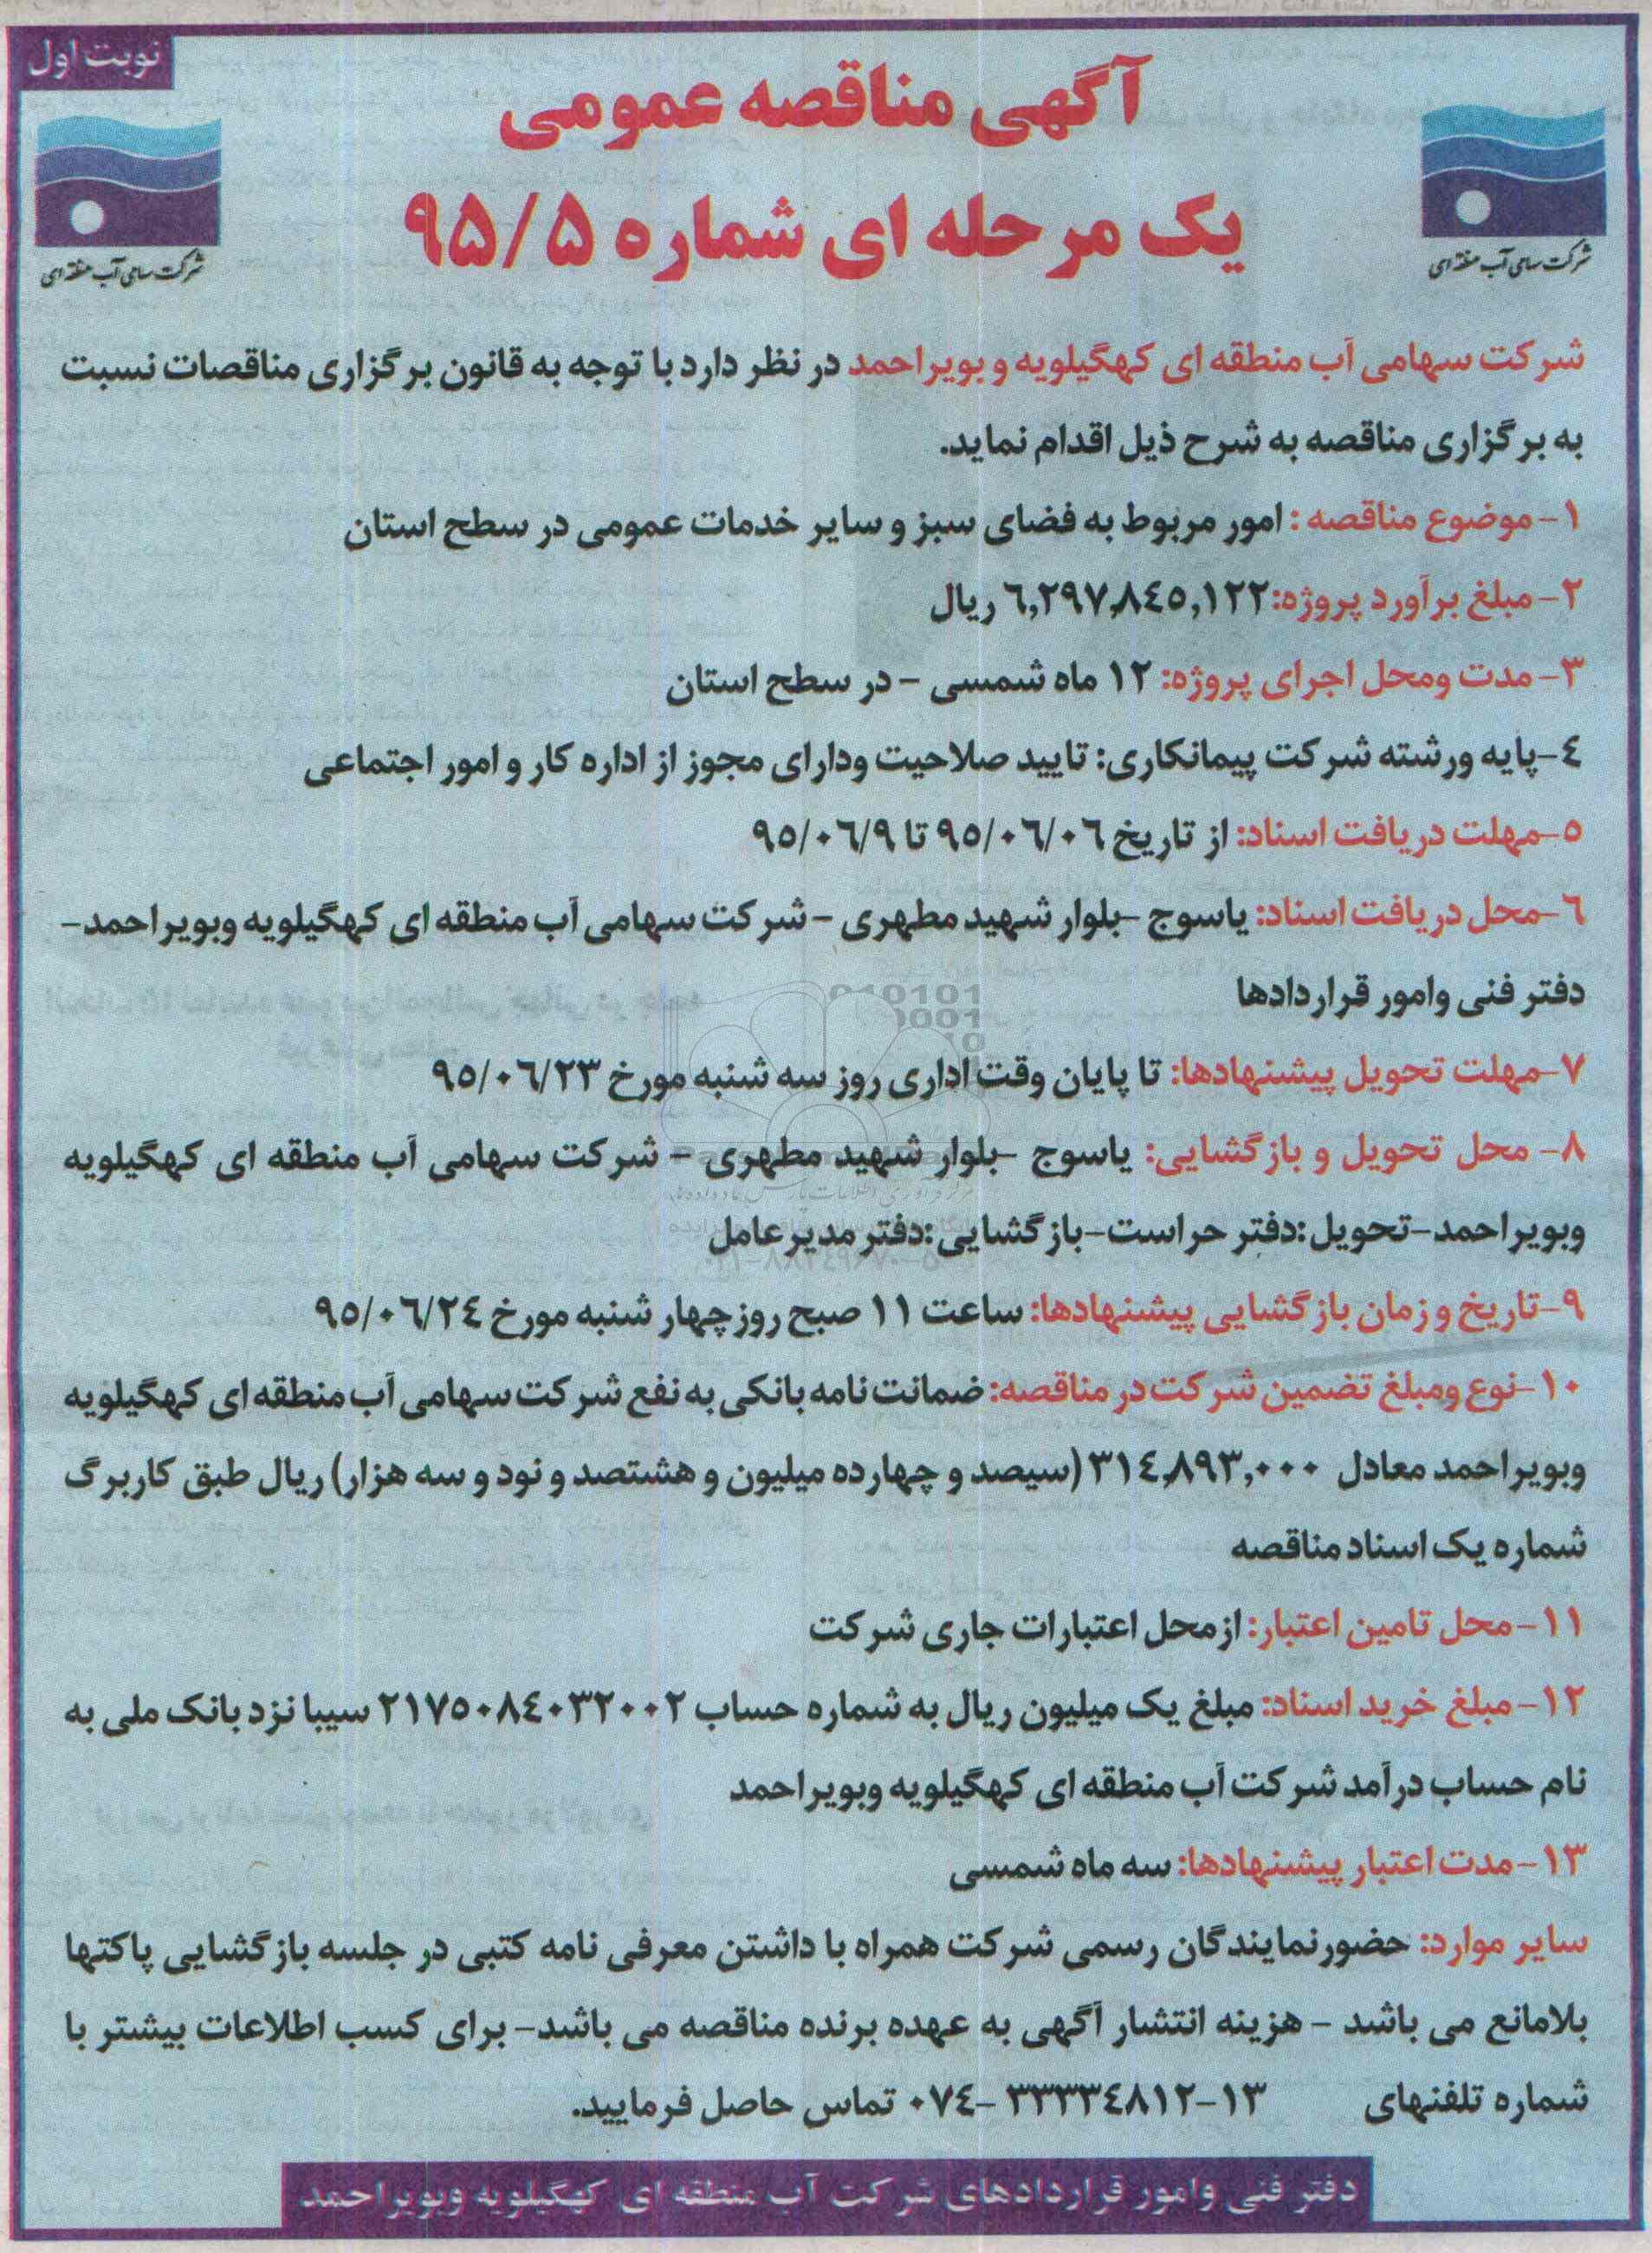 نوبت اول
آگهی مناقصه عمومی
یک مرحله ای شماره ۹۵/۵
شرکت سهامی آب منطقه ای
شرکت سهامی آب منطقه ای
شرکت سهامی آب منطقه ای کهگیلویه و بویراحمد در نظر دارد با توجه به قانون برگزاری مناقصات نسبت
به برگزاری مناقصه به شرح ذیل اقدام نماید.
۱- موضوع مناقصه : امور مربوط به فضای سبز و سایر خدمات عمومی در سطح استان
۲- مبلغ برآورد پروژه: ۶,۲۹۷,۸۴۵,۱۲۲ ریال
۳- مدت ومحل اجرای پروژه: ۱۲ ماه شمسی - در سطح استان
۴-پایه ورشته شرکت پیمانکاری: تایید صلاحیت ودارای مجوز از اداره کار و امور اجتماعی
۵-مهلت دریافت اسناد: از تاریخ ۹۵/۰۶/۰۶ تا ۹۵/۰۶/۹
۶-محل دریافت اسناد: یاسوج -بلوار شهید مطهری -شرکت سهامی آب منطقه ای کهگیلویه وبویراحمد-
دفتر فنی وامور قراردادها
۷-مهلت تحویل پیشنهادها: تا پایان وقت اداری روز سه شنبه مورخ ۹۵/۰۶/۲۳
۸- محل تحویل و بازگشایی: یاسوج -بلوار شهید مطهری - شرکت سهامی آب منطقه ای کهگیلویه
وبویراحمد-تحویل:دفتر حراست-بازگشایی:دفتر مدیرعامل
۹-تاریخ و زمان بازگشایی پیشنهادها: ساعت ۱۱ صبح روز چهار شنبه مورخ ۹۵/۰۶/۲۴
۱۰-نوع ومبلغ تضمین شرکت در مناقصه: ضمانت نامه بانکی به نفع شرکت سهامی آب منطقه ای کهگیلویه
وبویراحمد معادل ۳۱۴,۸۹۳,۰۰۰ (سیصد و چهارده میلیون و هشتصد و نود و سه هزار) ریال طبق کاربرگ
شماره یک اسناد مناقصه
۱۱- محل تامین اعتبار: ازمحل اعتبارات جاری شرکت
۱۲- مبلغ خرید اسناد: مبلغ یک میلیون ریال به شماره حساب ۲۱۷۵۰۸۴۰۳۲۰۰۲ سیبا نزد بانک ملی به
نام حساب درآمد شرکت آب منطقه ای کهگیلویه وبویراحمد
۱۳- مدت اعتبار پیشنهادها: سه ماه شمسی
سایر موارد: حضورنمایندگان رسمی شرکت همراه با داشتن معرفی نامه کتبی در جلسه بازگشایی پاکتها
بلامانع می باشد - هزینه انتشار آگهی به عهده برنده مناقصه می باشد- برای کسب اطلاعات بیشتر با
شماره تلفنهای ۱۳-۳۳۳۳۴۸۱۲-۰۷۴ تماس حاصل فرمایید.
دفتر فنی وامور قراردادهای شرکت آب منطقه ای کهگیلویه وبویراحمد